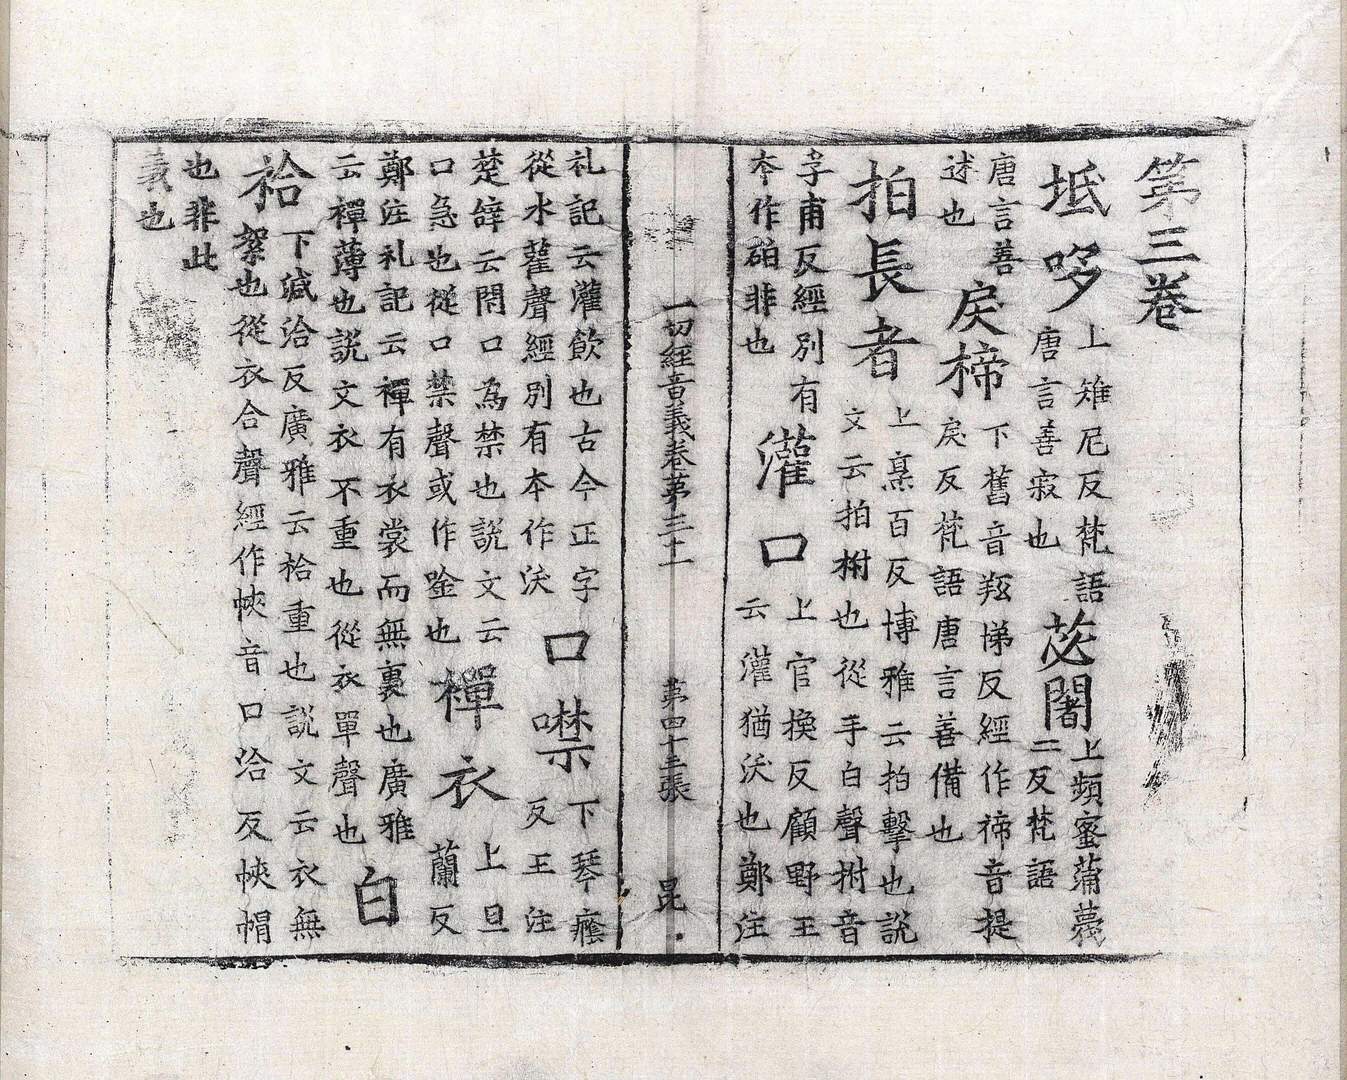 第三卷
坻哆
上雉尼反梵語
唐言善寂也
苾闍
上頻蜜蒲蔑
二反梵語
唐言善
述也
戾楴
下舊音羝悌反經作褅音提
戾反梵語唐言善備也
拍長者
上烹百反博雅云拍擊也説
文云拍拊也從手白聲拊音
孚甫反經別有
本作䂟非也
灌口
上官換反顧野王
云灌猶沃也鄭注
一切經音義卷第三十一 第四十三張 昆
礼記云灌飲也古今正字
從水雚聲經別有本作沃
口噤
下琴癊
反王注
楚辝云閉口為禁也説文云
口急也從口禁聲或作唫也
襌衣
上旦
蘭反
鄭注礼記云襌有衣裳而無裏也廣雅
云襌薄也説文衣不重也從衣單聲也
白
袷
下減洽反廣雅云袷重也説文云衣無
絮也從衣合聲經作㡇音口洽反㡇帽
也非此
義也